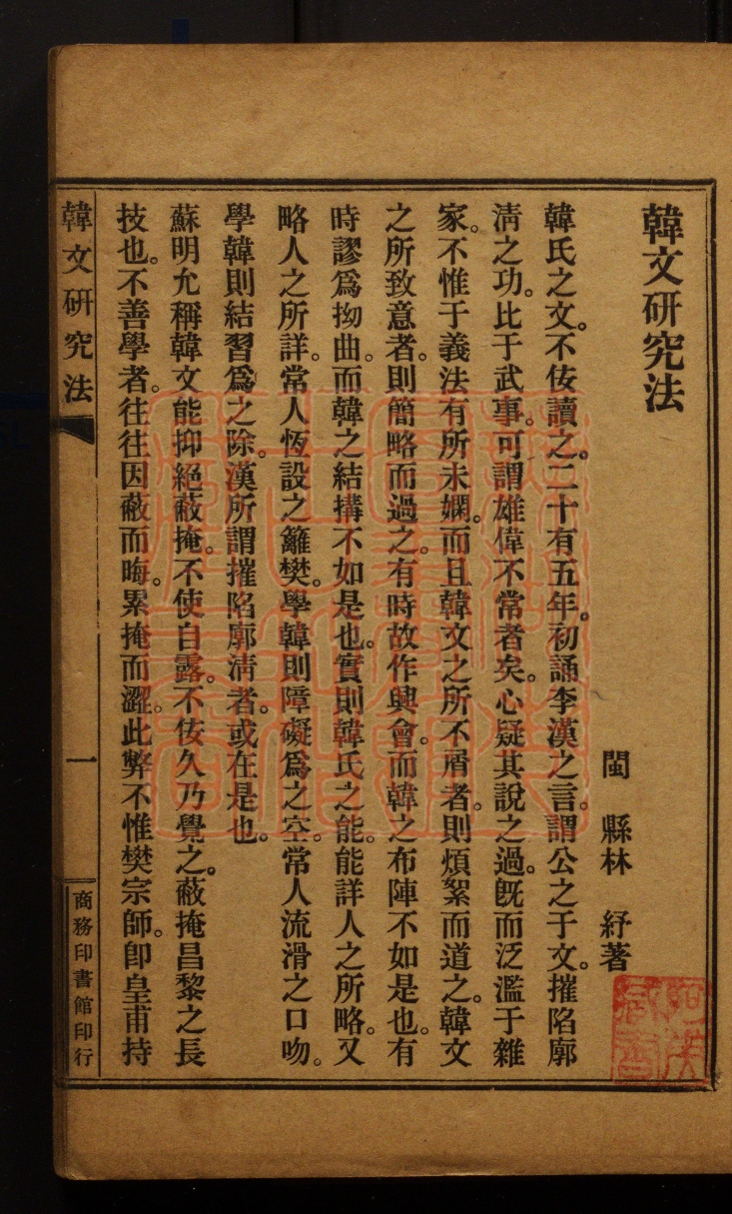 韓文研究法
閩縣林紓著
韓氏之文。不佞讀之。二十有五年。初誦李漢之言。謂公之于文。摧陷廓
淸之功。比于武事。可謂雄偉不常者矣。心疑其說之過。旣而泛濫于雜
家。不惟于義法有所未嫻。而且韓文之所不屑者。則煩絮而道之。韓文
之所致意者。則簡略而過之。有時故作興會。而韓之布陣不如是也。有
時謬爲拗曲。而韓之結搆不如是也。實則韓氏之能。能詳人之所略。又
略人之所詳。常人恆設之籬樊。學韓則障礙爲之空。常人流滑之口吻。
學韓則結習爲之除。漢所謂摧陷廓淸者。或在是也。
蘇明允稱韓文能抑絕蔽掩。不使自露。不佞久乃覺之。蔽掩昌黎之長
技也。不善學者。往往因蔽而晦。累掩而澀。此弊不惟樊宗師。卽皇甫持
韓文研究法
一
商務印書館印行